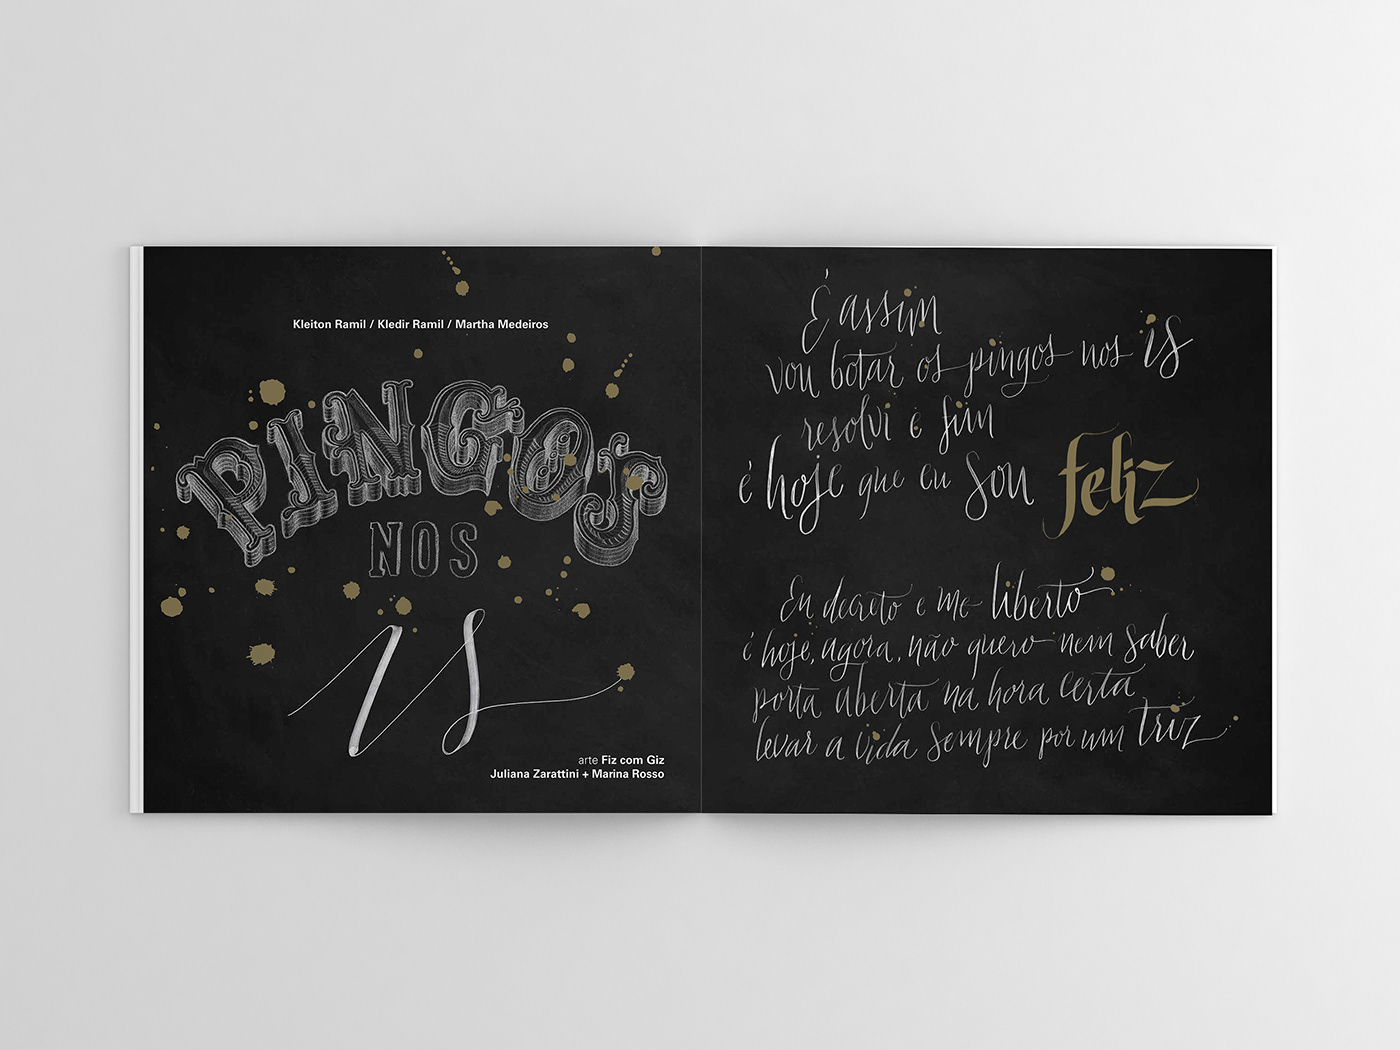 Kleiton Ramil / Kledir Ramil / Martha Medeiros
PINGOS
NOS
is
arte Fiz com Giz
Juliana Zarattini + Marina Rosso
É assim
vou botar os pingos nos is
resolvi e fim
é hoje que eu sou feliz
Eu decreto e me liberto
é hoje, agora, não quero nem saber
porta aberta na hora certa
levar a vida sempre por um triz